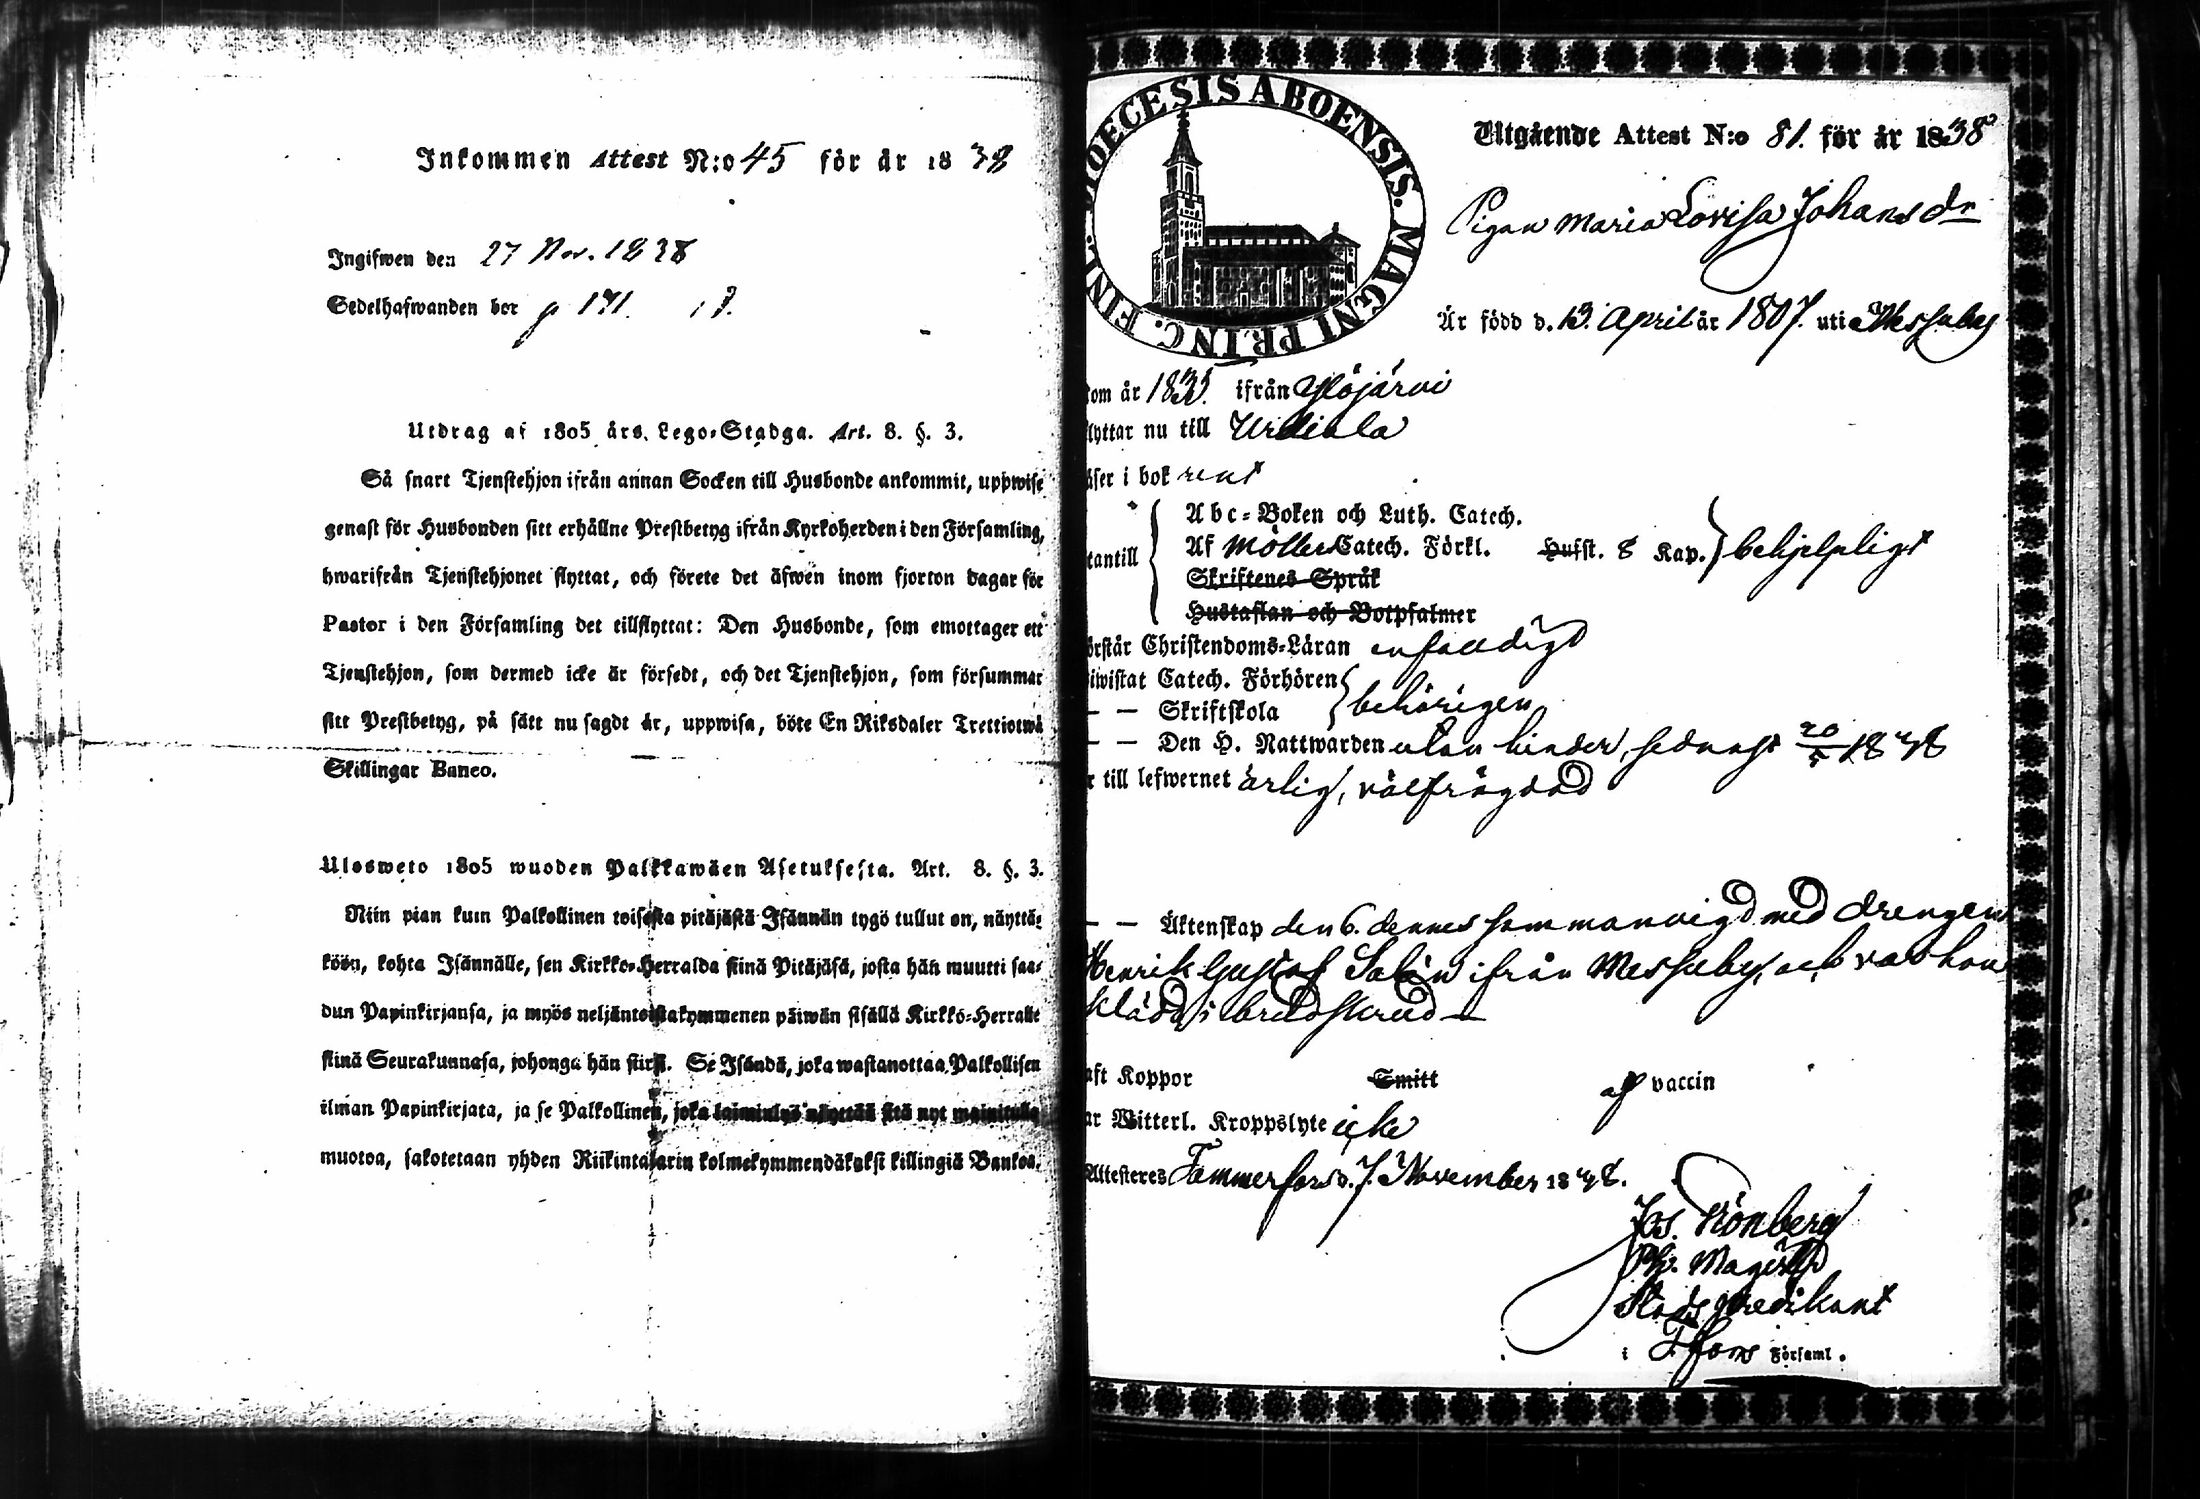 Inkommen Attest N:o 45 för år 1838
Ingifwen den 27 Nov. 1838
Sedelhafwanden bor p 171.
Utdrag af 1805 års Lego-Stadga. Art. 8. §. 3.
Så snart Tjenstehjon ifrån annan Socken till Husbonde ankommit, uppwise
genast för Husbonden sitt erhållne Prestbetyg ifrån Kyrkoherden i den Församling,
hwarifrån Tjenstehjonet flyttat, och förete det äfwen inom fjorton dagar för
Pastor i den Församling det tillflyttat: Den Husbonde, som emottager ett
Tjenstehjon, som dermed icke är försedt, och det Tjenstehjon, som försummar
sitt Prestbetyg, på sätt nu sagdt är, uppwisa, böte En Riksdaler Trettiotwå
Skillingar Banco.
Ulosweto 1805 wuoden Palkkawäen Asetuksesta. Art. 8. §. 3.
Niin pian kuin Palkollinen toisesta pitäjästä Isännän tygö tullut on, näyttä-
köön, kohta Isännälle, sen Kirkko-Herralda siinä Pitäjäsä, josta hän muutti saa-
dun Papinkirjansa, ja myös neljäntoistakymmenen päiwän sisällä Kirkko-Herralle
siinä Seurakunnasa, johonga hän siirsi. Se Isändä, joka wastanottaa Palkollisen
ilman Papinkirjata, ja se Palkollinen, joka laiminlyö näyttää sitä nyt mainitulla
muotoa, sakotetaan yhden Riikintalarin kolmekymmendäkaksi killingiä Bankoa.
DIOECESIS ABOENSIS. MAGNI PRINC. FINL.
Utgående Attest N:o 81. för år 1838
Pigan Maria Lovisa Johansdr
Är född d. 13. April år 1807. uti Messuby
kom år 1835. ifrån Ylöjärvi
flyttar nu till Urdiala
läser i bok rent
utantill
Abc-Boken och Luth. Catech.
Af Möllers Catech. Förkl. Husst. 8 Kap. behjelpligt
Skriftenes Språk
Hustaflan och Botpsalmer
förstår Christendoms-Läran enfaldigt
biwistat Catech. Förhören
— — Skriftskola behörigen
— — Den H. Nattwarden utan hinder, sednast 20/5 1838
är till lefwernet ärlig, välfrägdad
— — Äktenskap den 6. dennes sammanvigd med drengen
Henrik Gustaf Salin ifrån Messuby, och var hon
klädd i brudskrud
haft Koppor Smitt af vaccin
har Witterl. Kroppslyte icke
Attesteres Tammerfors d. 7. November 1838.
Jos. Grönberg
Ph. Magister
Stads predikant
i T:fors Församl.